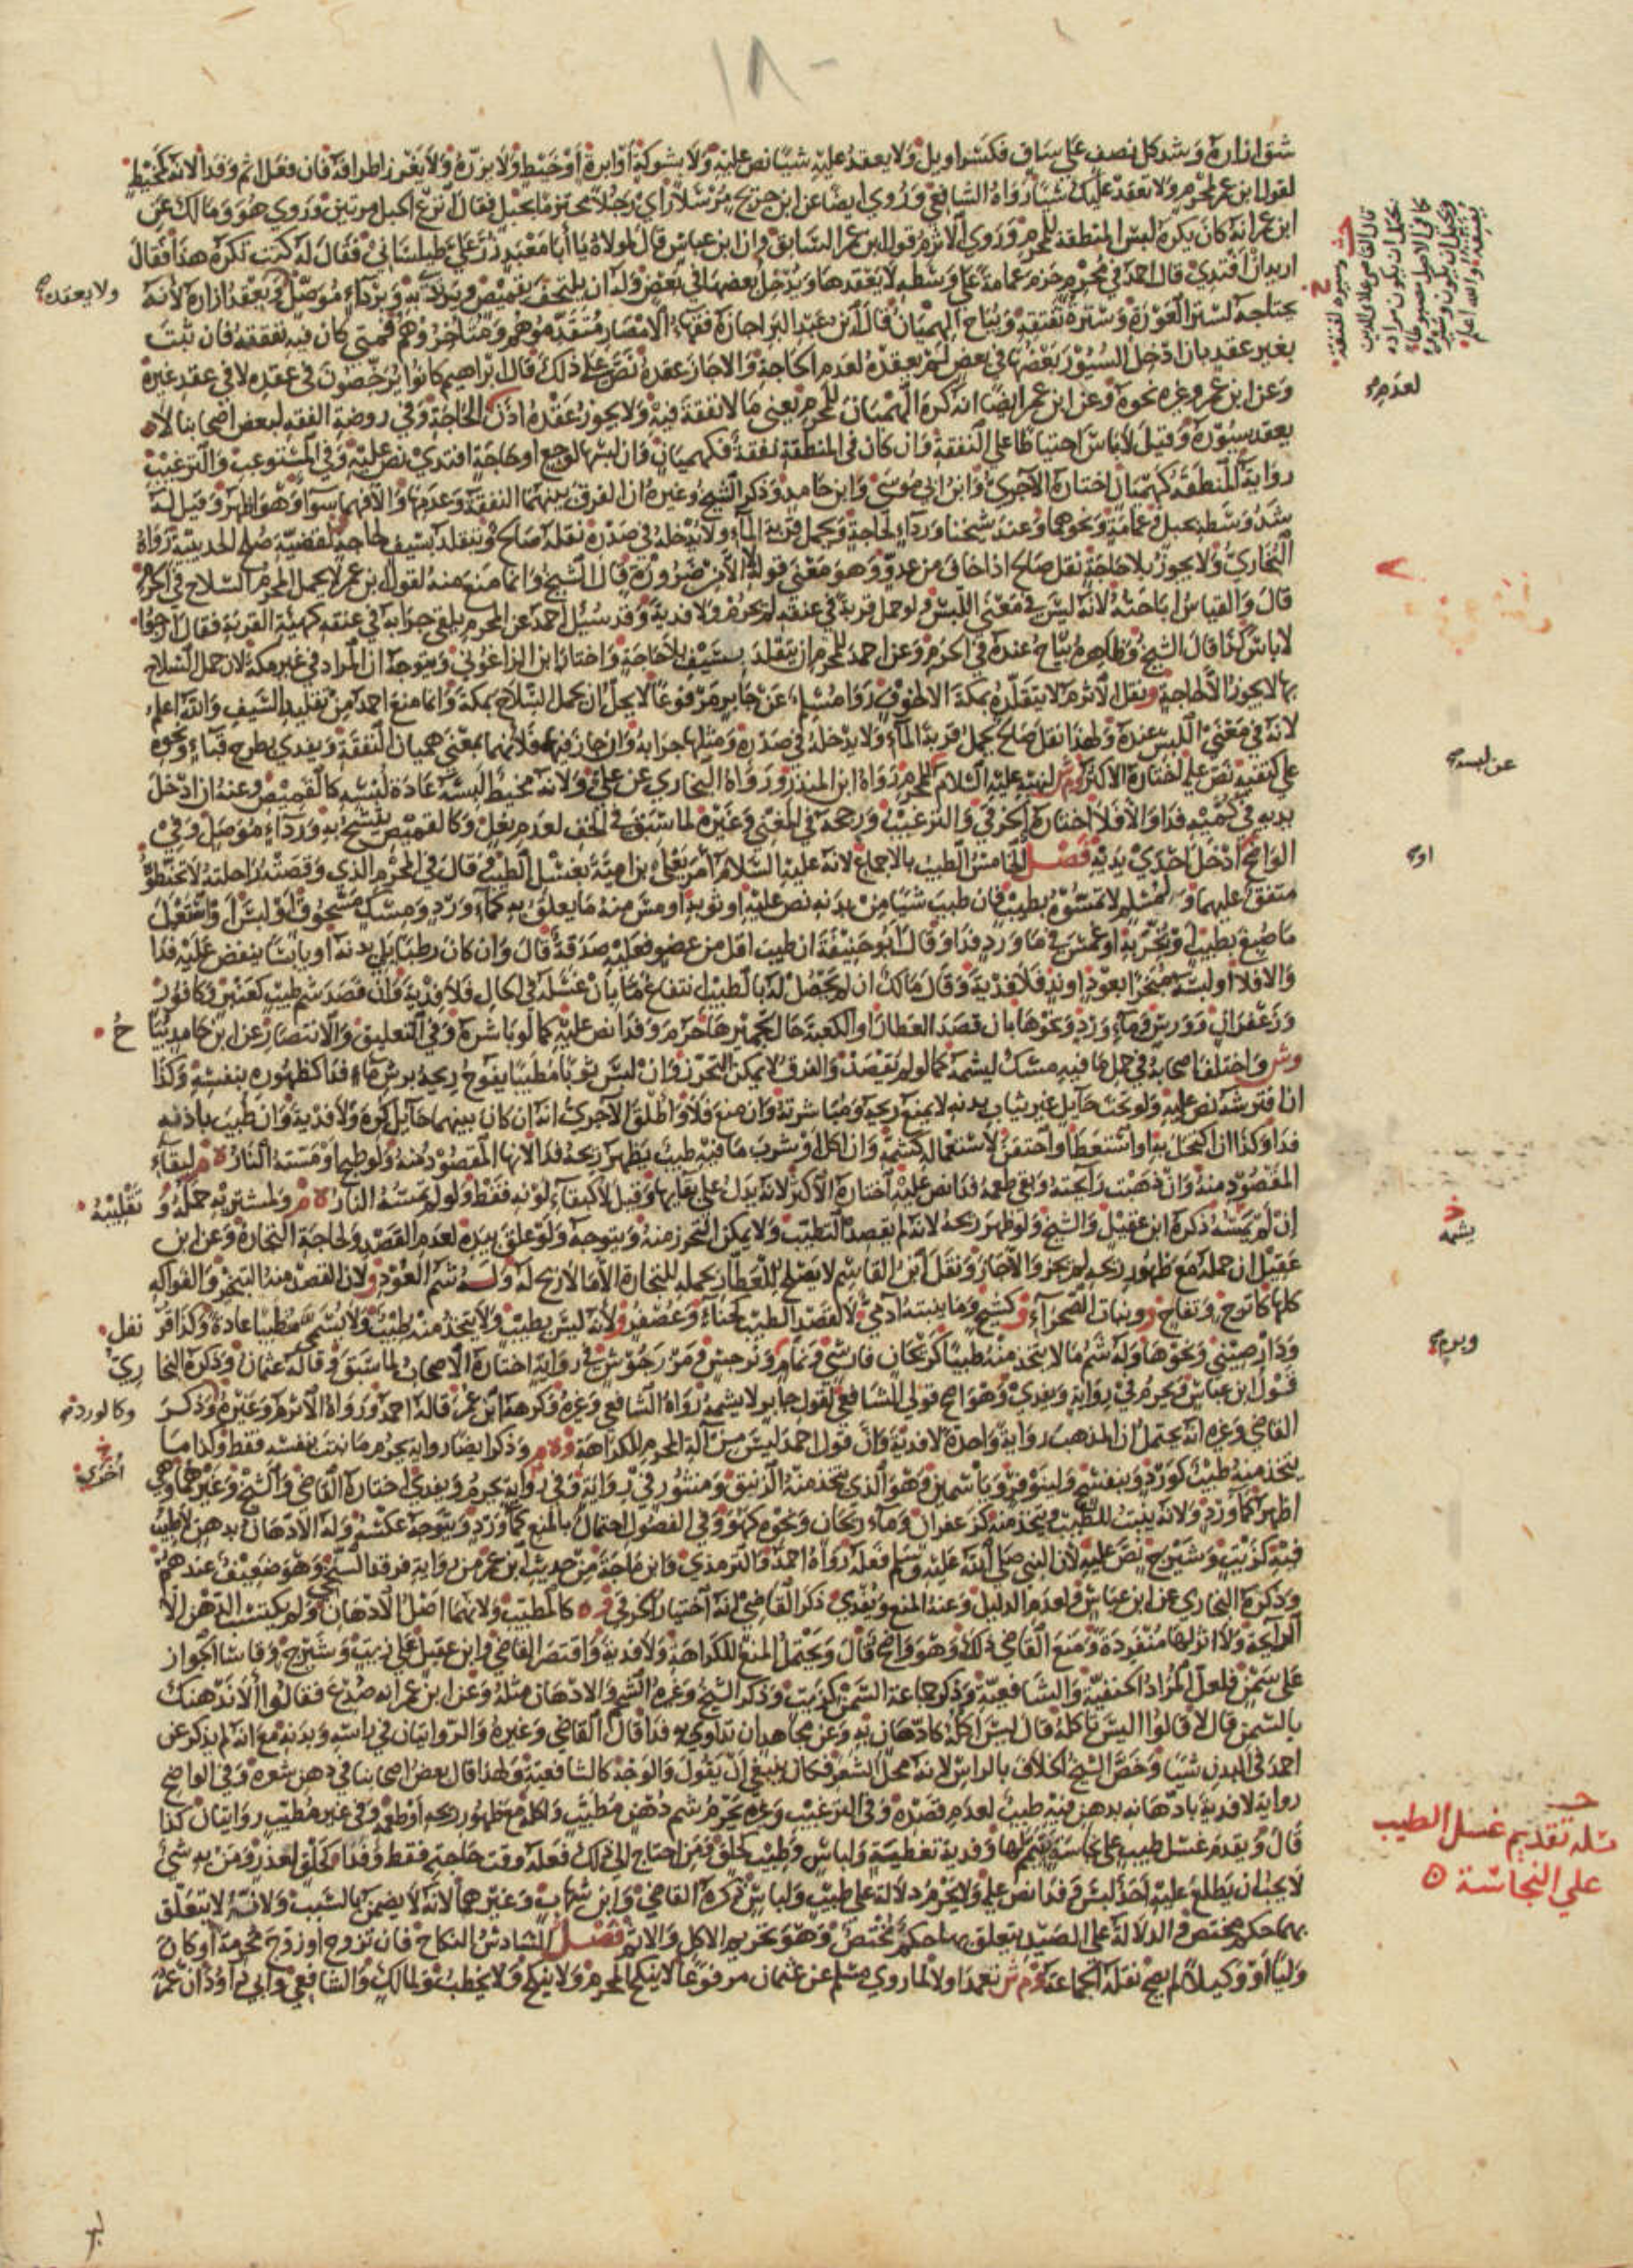 ١٨٠
شق ازاره وشد كل نصف على ساق فكسراويل ولا يعقد عليه شيئا نص عليه ولا بشوكة او ابرة او خيط ولا يزره ولا يغرز اطرافه فان فعل اثم وفدا لانه كمخيط
لقول ابن عمر لمحرم ولا تعقد عليك شيئا رواه الشافعي وروي ايضا عن ابن جريج مرسلا راى رجلا محتزما بحبل فقال انزع الحبل مرتين وروي هو ومالك عن
ابن عمر انه كان يكره لبس المنطقة للمحرم وروي الاثرم قول ابن عمر السابق وان ابن عباس قال لمولاه يا ابا معبد زر علي طيلساني فقال له كنت تكره هذا فقال
اريد ان افتدي قال احمد في محرم حزم عمامة على وسطه لا يعقدها ويدخل بعضها في بعض وله ان يلتحف بقميص ويرتدي به وبرداء موصل ولا يعقده ويعقد ازاره لانه
يحتاجه لستر العورة وسترة نفقته ويباح الهميان قال ابن عبد البر اجازه فقهاء الامصار متقدموهم ومتاخروهم فمتى كان فيه نفقته فان ثبت
بغير عقد بان ادخل السيور بعضها في بعض لم يعقده لعدم الحاجة والا جاز عقده نص على ذلك قال ابراهيم كانوا يرخصون في عقده لا في عقد غيره
وعن ابن عمر وغيره نحوه وعن ابن عمر ايضا انه كره الهميان للمحرم يعني ما لا نفقة فيه ولا يجوز عقده اذن لعدم الحاجة وفي روضة الفقه لبعض اصحابنا لا
يعقد سيوره وقيل لا باس احتياطا على النفقة وان كان في المنطقة نفقة فكهميان وان لبسها لوجع او حاجة افتدي نص عليه وفي المستوعب والترغيب
رواية المنطقة كهميان اختاره الاجري وابن ابي موسى وابن حامد وذكر الشيخ وغيره ان الفرق بينهما النفقة وعدمها والا فهما سوا وهو اظهر وقيل له
شد وسطه بحبل وعمامة ونحوهما وعند شيخنا ورداء لحاجة ويحمل قربة الماء ولا يدخله في صدره نقله صالح ويتقلد بسيف لحاجة لقضية صلح الحديبية رواه
البخاري ولا يجوز بلا حاجة نقل صالح اذا خاف من عدو وهو معنى قوله الا من ضرورة قال الشيخ وانما منع منه لقول ابن عمر لا يحمل المحرم السلاح في الحرم
قال والقياس اباحته لانه ليس في معنى اللبس ولو حمل قربة في عنقه لم يحرم ولا فدية وقد سئل احمد عن المحرم يلقي جرابه في عنقه كهيئة القربة فقال ارجو ان
لا باس كذا قال الشيخ وظاهره يباح عنده في الحرم وعن احمد للمحرم ان يتقلد بسيف بلا حاجة واختاره ابن الزاغوني ويتوجه ان المراد في غير مكة لان حمل السلاح
بها لا يجوز الا لحاجة ونقل الاثرم لا يتقلد به بمكة الا لخوف روا مسلم عن جابر مرفوعا لا يحل ان يحمل السلاح بمكة وانما منع احمد من تقليد السيف والله اعلم
لانه في معنى اللبس عنده ولهذا نقل صالح يحمل قربة الماء ولا يدخله في صدره ومثلها جرابه وان جاز فيها فلانهما بمعنى هميان النفقة ويفدي بطرح قباء ونحوه
على كتفيه نص عليه اختاره الاكثر وم ش لنهيه عليه السلام عن لبسه للمحرم رواه ابن المنذر ورواه البخاري عن علي ولانه مخيط لبسه عادة لبسه كالقميص وعنه ان ادخل
يديه في كميه فدا والا فلا اختاره الخرقي والترغيب ورجحه في المغني وغيره لما سبق في الخف لعدم نعل وكالقميص يتشح به ورداء موصل وفي
الواضح او ادخل احدي يديه فصل الخامس الطيب بالاجماع لانه عليه السلام امر يعلي بن امية بغسل الطيب وقال في المحرم الذي وقصته راحلته لا تحنطوه
متفق عليهما ولمسلم لا تمسوه بطيب فان طيب شيئا من بدنه نص عليه او ثوبه او مس منه ما يعلق به كماء ورد ومسك مسحوق او لبس او استعمل
ما صبغ بطيب او تبخر به او غمس في ماء ورد فدا وقال ابو حنيفة ان طيب اقل من عضو فعليه صدقة قال وان كان رطبا يلي بدنه او يابسا ينفض عليه فدا
والا فلا او لبسه مبخرا بعود او ند فلا فدية وقال مالك ان لم يحصل له بالطيب انتفاع ما بان غسله في الحال فلا فدية وان قصد شم طيب كعنبر وكافور
وزعفران وورس وماء ورد ونحوها بان قصد العطار او الكعبة حال تجميرها حرم وفدا نص عليه كما لو باشره وفي التعليق والانتصار عن ابن حامد يباح
وش واختلف اصحابه في حمل ما فيه مسك ليشمه كما لو لم يقصد والفرق لا يمكن التحرز وان لبس ثوبا مطيبا يفوح ريحه برش ماء فدا كظهوره بنفسه وكذا
ان افترشه نص عليه ولو تحت حايل غير ثياب بدنه لا يمنع ريحه ومباشرته وان منع فلا واطلق الاجري انه ان كان بينهما حايل كره ولا فدية وان طيب باذنه
فدا وكذا ان اكتحل به او استعط او احتقن لاستعماله كشمه وان اكل او شرب ما فيه طيب يظهر ريحه فدا لانها المقصود منه ولو طبخ او مسته النار ه م لبقاء
المقصود منه وان ذهبت رايحته وبقي طعمه فدا نص عليه اختاره الاكثر لانه يدل على بقايها وقيل لا كبقاء لونه فقط ولو لم تمسه النار ه م ولمشتريه حمله وتقليبه
ان لم يمسه ذكره ابن عقيل والشيخ ولو ظهر ريحه لانه لم يقصد التطيب ولا يمكن التحرز منه ويتوجه ولو علق بيده لعدم القصد ولحاجة التجارة وعن ابن
عقيل ان حمله مع ظهور ريحه لم يجز والا جاز ونقل ابن القاسم لا يصلح للعطار يحمله للتجارة الا ما لا ريح له وله شم العود ولان القصد منه التبخر والفواكه
كلها كاترج وتفاح و ونبات الصحراء وكشيح وما ينبته ادمي لا لقصد الطيب كحناء وعصفر و لانه ليس بطيب ولا يتخذ منه طيب ولا يسمى مطيبا عادة وكذا قرنفل
ودار صيني ونحوها وله شم ما لا يتخذ منه طيبا كريحان فارسي ونمام ونرجس ومرزجوش في رواية اختاره الاصحاب لما سبق وقاله عثمان وذكره البخاري
قول ابن عباس ويحرم في رواية ويفدي وهو اصح قولي الشافعي لقول جابر لا يشمه رواه الشافعي وغيره وكرهه ابن عمر قاله احمد ورواه الاثرم وغيره وذكر
القاضي وغيره انه يحتمل ان المذهب رواية واحدة لا فدية وان قول احمد ليس من الة المحرم للكراهة وه م وذكر ايضا رواية يحرم ما نبت بنفسه فقط وكذا ما
يتخذ منه طيب كورد وبنفسج ولينوفر وياسمين وهو الذي يتخذ منه الزنبق ومنثور في رواية وفي رواية يحرم ويفدي اختاره القاضي والشيخ وغيرهما وهي
اظهر كماء ورد ولانه ينبت للطيب ويتخذ منه كزعفران وماء ريحان ونحوه كهو وفي الفصول احتمال بالمنع كماء ورد ويتوجه عكسه وله الادهان بدهن لا طيب
فيه كزيت وشيرج نص عليه لان النبي صلى الله عليه وسلم فعله رواه احمد والترمذي وابن ماجة من حديث ابن عمر من رواية فرقد السبخي وهو ضعيف عندهم
وذكره البخاري عن ابن عباس ولعدم الدليل وعنه المنع ويفدي ذكر القاضي انه اختيار الخرقي وه كالمطيب ولانهما اصل الادهان ولم يكتسب الدهن الا
الرايحة ولا اثر لها منفردة ومنع القاضي ذلك وهو واضح قال ويحتمل المنع للكراهة ولا فدية واقتصر القاضي وابن عقيل على زيت وشيرج وقاسا الجواز
على سمن فلعل المراد الحنفية والشافعية وذكر جماعة السمن كزيت وذكر الشيخ وغيره الشحم والادهان مثله وعن ابن عمر انه صدع فقالوا الا ندهنك
بالسمن قال لا قالوا اليس تاكله قال ليس اكله كادهان به وعن مجاهد ان تداوي به فدا قال القاضي وغيره والروايتان في راسه وبدنه مع انه لم يذكر عن
احمد في البدن شيئا وخص الشيخ الخلاف بالراس لانه محل الشعر فكان ينبغي ان يقول والوجه كالشافعية ولهذا قال بعض اصحابنا في دهن شعره وفي الواضح
رواية لا فدية بادهانه بدهن فيه طيب لعدم قصده وفي الترغيب وغيره يحرم شم دهن مطيب واكله مع ظهور ريحه او طعمه وفي غير مطيب روايتان كذا
قال ويقدم غسل طيب على نجاسة يتيمم لها وفدية تغطية ولباس وطيب كحلق ومن احتاج الى ذلك فعله وقت حاجته فقط وفدا كحلق لعذر ومن به شئ
لا يحب ان يطلع عليه احد لبس وفدا نص عليه ولا يحرم دلالة على طيب ولباس ذكره القاضي وابن شهاب وغيرهما لانه لا يضمن بالسبب ولانه لا يتعلق
بهما حكم مختص والدلالة على الصيد يتعلق بها حكم مختص وهو تحريم الاكل والاثم فصل السادس النكاح فان تزوج او زوج محرمة او كان
وليا او وكيلا لم يصح نقله الجماعة وم ش تعمد او لا لما روي مسلم عن عثمان مرفوعا لا ينكح المحرم ولا ينكح ولا يخطب ولمالك والشافعي وابي داود ان عمر
ولا يعقده
لعدم
عن لبسه
او
يشمه
وبرم
وكالورد
اخرى
مسئلة تقديم غسل الطيب
على النجاسة